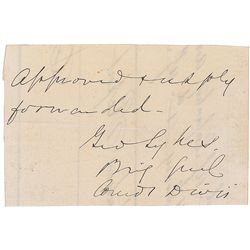 Approved & resply
forwarded.
Geo Sykes
Brig Genl
Comdr Divis